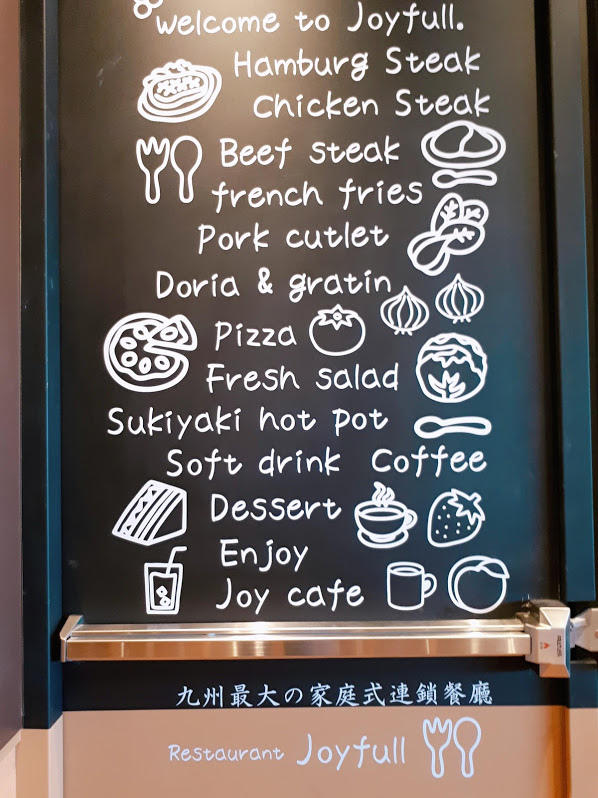 Welcome to Joyfull.
Hamburg Steak
Chicken Steak
Beef steak
french fries
Pork cutlet
Doria & gratin
Pizza
Fresh salad
Sukiyaki hot pot
Soft drink Coffee
Dessert
Enjoy
Joy cafe
九州最大の家庭式連鎖餐廳
Restaurant Joyfull